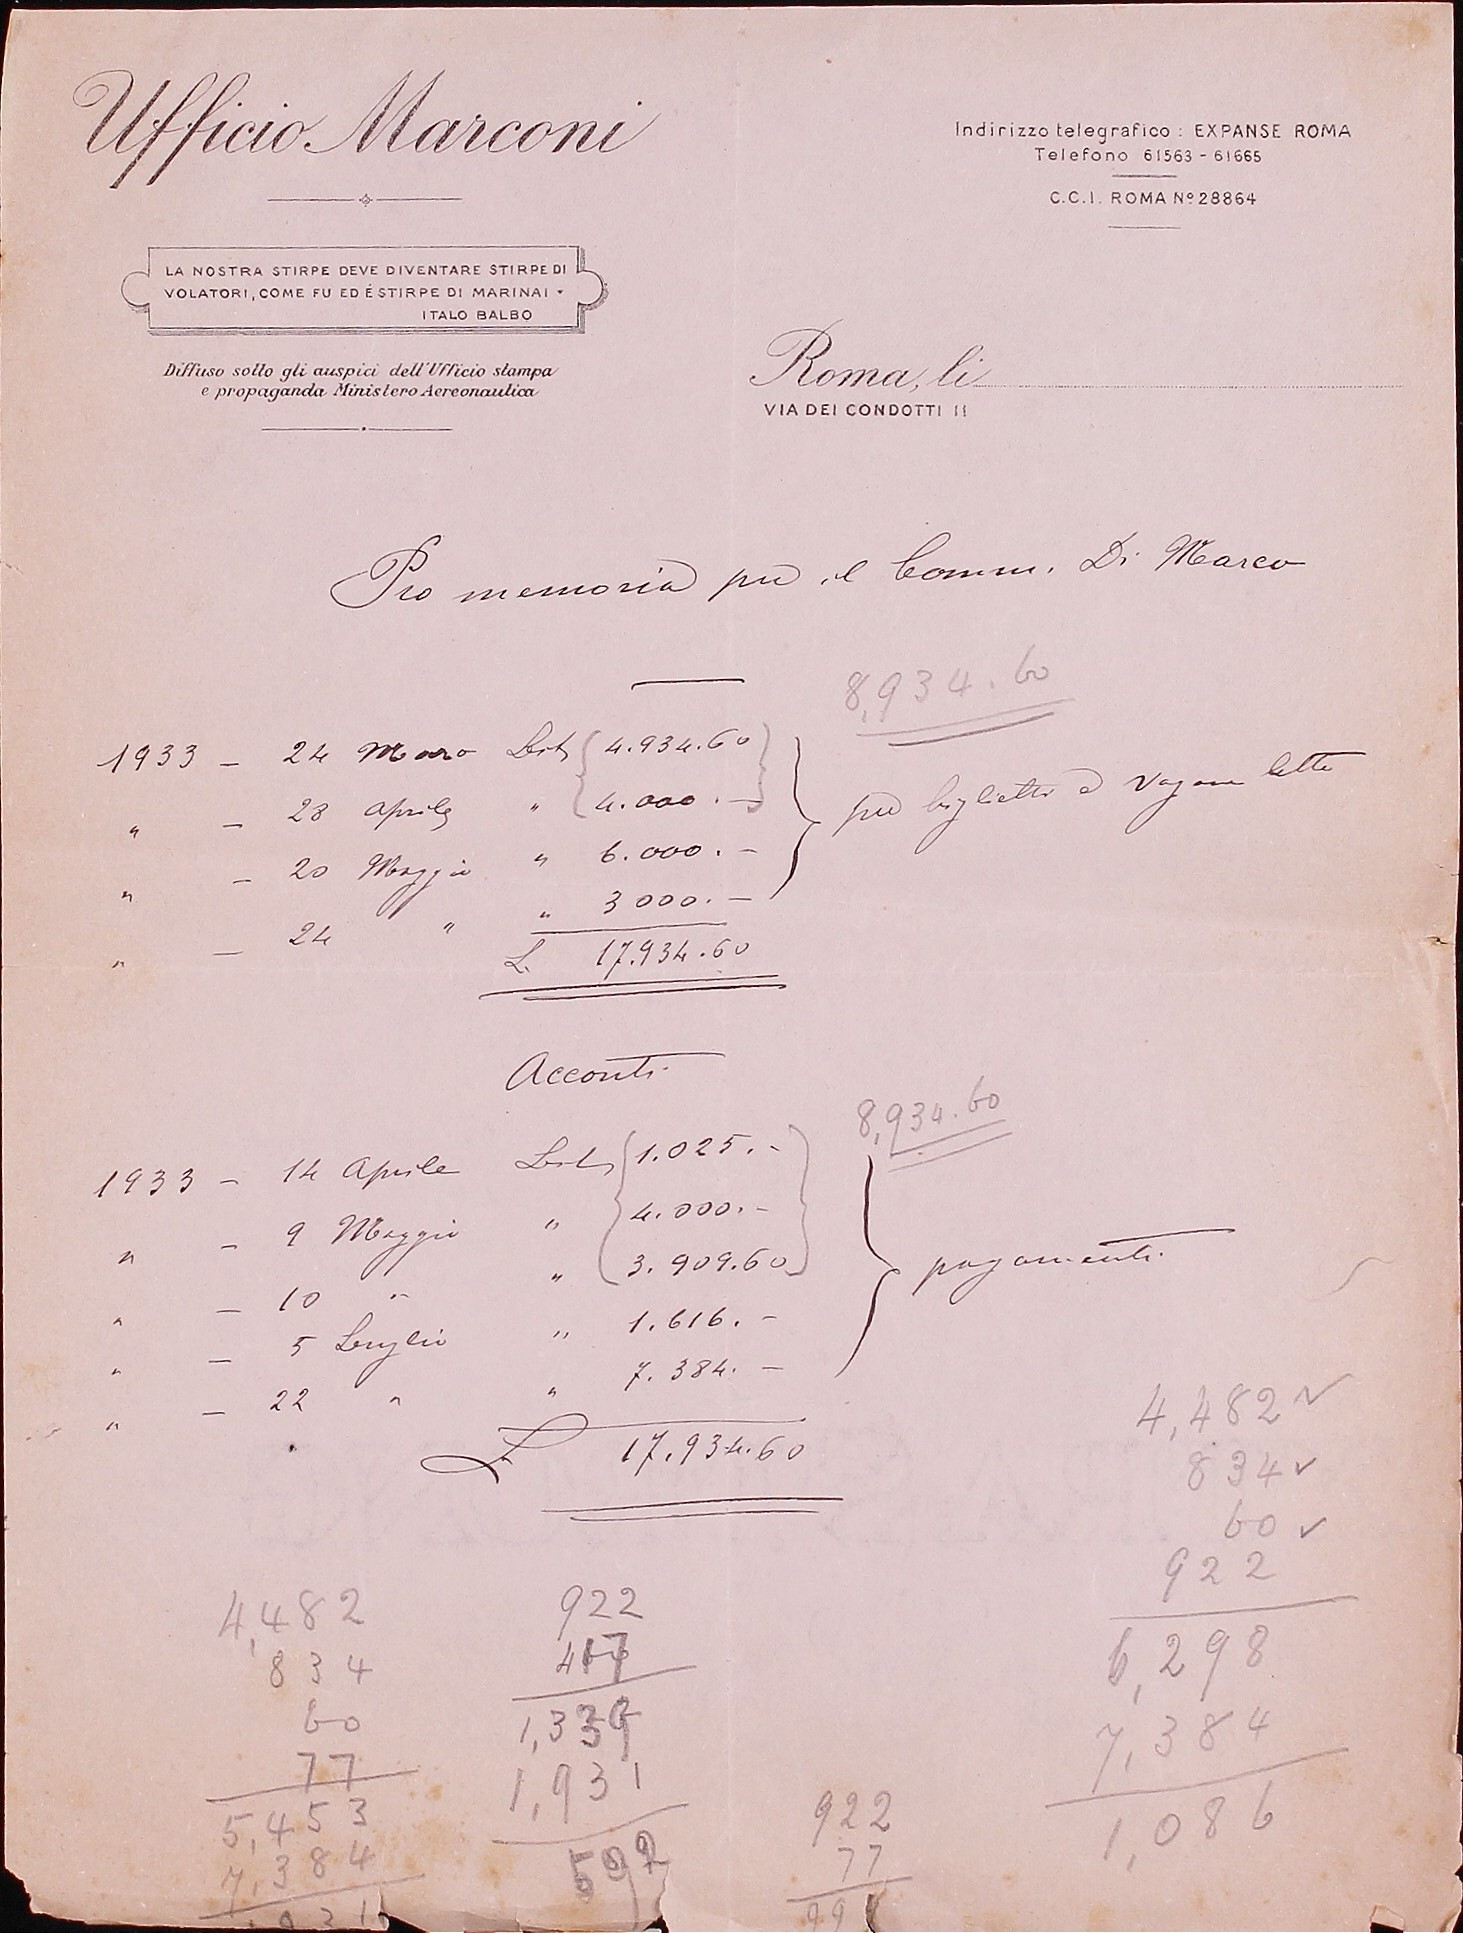 Ufficio Marconi
Indirizzo telegrafico : EXPANSE ROMA
Telefono 61563 - 61665
C.C.I. ROMA Nº 28864
LA NOSTRA STIRPE DEVE DIVENTARE STIRPE DI
VOLATORI, COME FU ED É STIRPE DI MARINAI -
ITALO BALBO
Diffuso sotto gli auspici dell'Ufficio stampa
e propaganda Ministero Aereonautica
Roma, li
VIA DEI CONDOTTI 11
Pro memoria per il Comm. Di Marco
8,934.60
1933 - 24 Marzo 4.934.60
" - 28 Aprile " 4.000.-
" - 20 Maggio " 6.000.-
" - 24 " " 3000.-
per biglietti e vagone letto
L. 17.934.60
Acconti
8,934.60
1933 - 14 Aprile 1.025.-
" - 9 Maggio " 4.000.-
" - 10 " " 3.909.60
" - 5 Luglio " 1.616.-
" - 22 " " 7.384.-
pagamenti
L 17.934.60
4,482
834
60
922
6,298
7,384
1,086
4,482
834
60
77
5,453
7,384
922
417
1,339
1,931
592
922
77